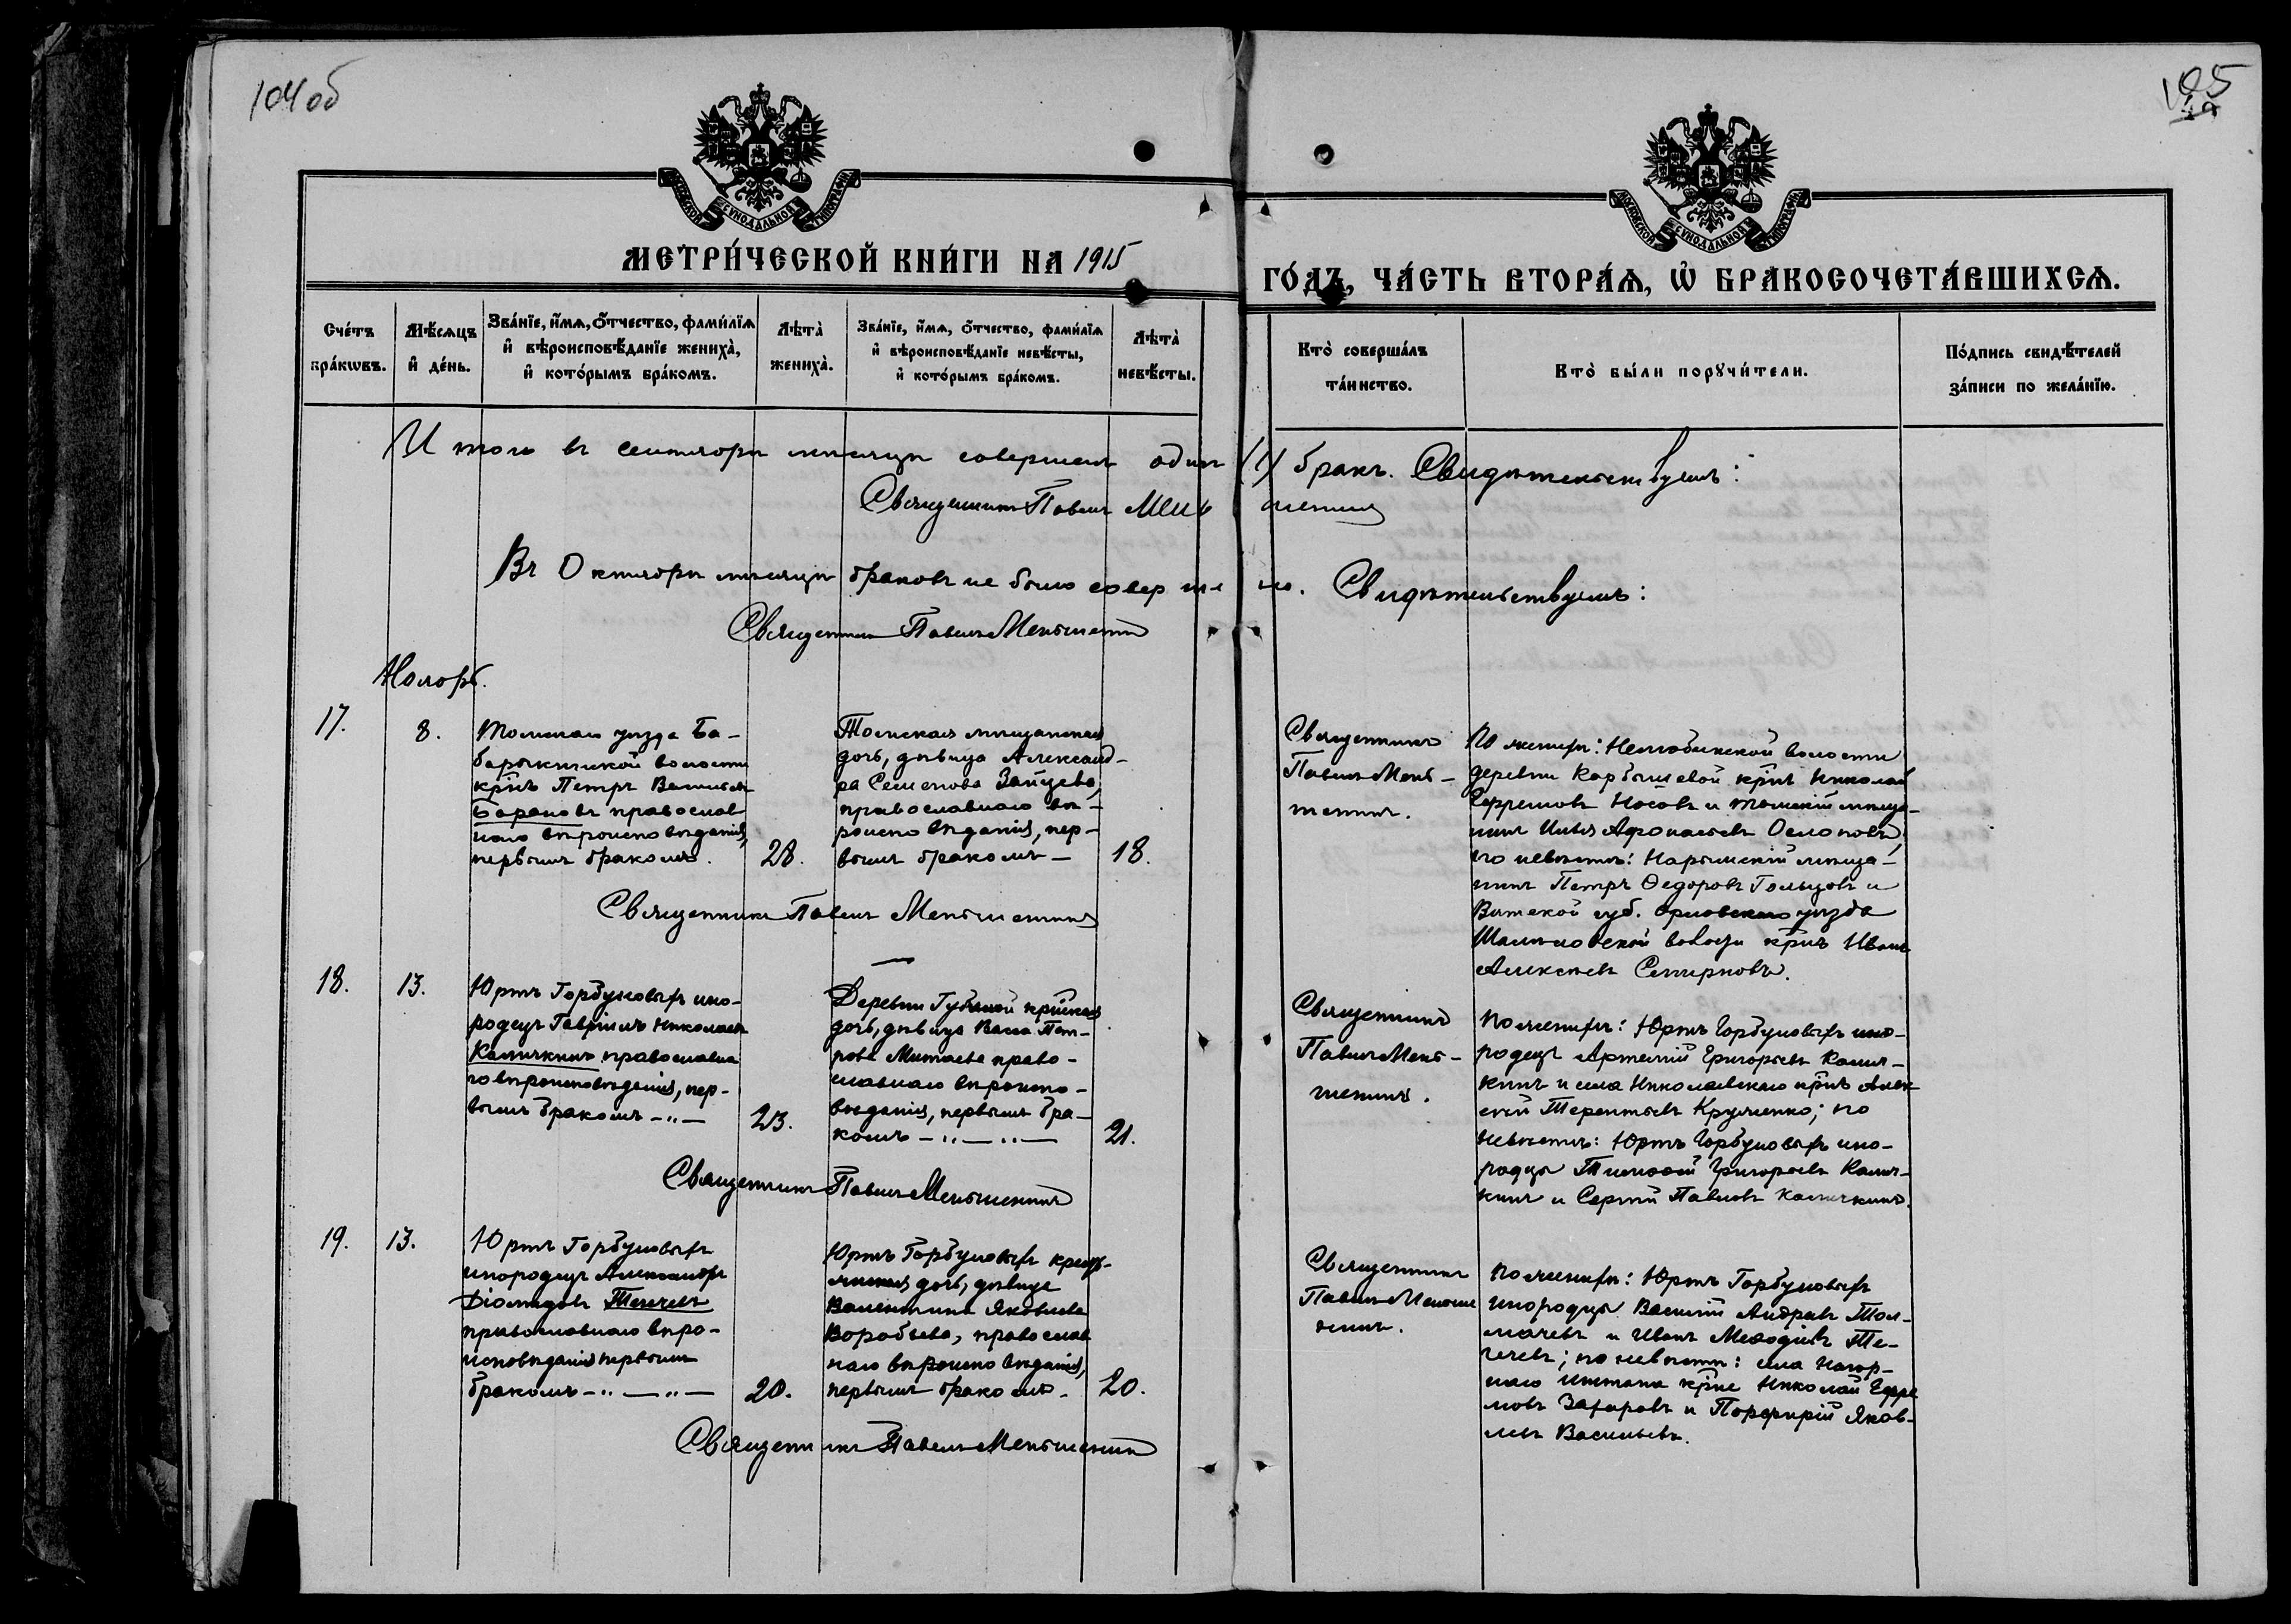 104 об
105
МОСКОВСКОЙ СУНОДАЛЬНОЙ ТИПОГРАФІИ
МОСКОВСКОЙ СУНОДАЛЬНОЙ ТИПОГРАФІИ
МЕТРИ́ЧЕСКОЙ КНИ́ГИ НА 1915
ГО́ДЪ, ЧА́СТЬ ВТОРА́Ѧ, Ѽ БРАКОСОЧЕТА́ВШИХСѦ.
Сче́тъ бра́кѡвъ.
Мѣ́сѧцъ и҆ де́нь.
Зва́нїе, и҆́мѧ, ѻ҆́тчество, фами́лїѧ и҆ вѣроисповѣ́данїе жениха̀, и҆ кото́рымъ бра́комъ.
Лѣта̀ жениха̀.
Зва́нїе, и҆́мѧ, ѻ҆́тчество, фами́лїѧ и҆ вѣроисповѣ́данїе невѣ́сты, и҆ кото́рымъ бра́комъ.
Лѣта̀ невѣ́сты.
Кто̀ соверша́лъ та́инство.
Кто̀ бы́ли порꙋчи́тели.
По́дпись свидѣ́телей за́писи по жела́нїю.
Итого въ Сентябрѣ мѣсяцѣ совершенъ одинъ (1) бракъ. Свидѣтельствуемъ:
Священникъ Павелъ Меньшенинъ
Въ Октябрѣ мѣсяцѣ браковъ не было совершено. Свидѣтельствуемъ:
Священникъ Павелъ Меньшенинъ
Ноябрь.
17.
8.
Томскаго уѣзда Ба-
барыкинской волости
кр̃нъ Петръ Васильевъ
Барановъ православ
наго вѣроисповѣданія,
первымъ бракомъ.
28.
Томская мѣщанская
дочь, дѣвица Александ-
ра Семенова Зайцева,
православнаго вѣ-
роисповѣданія, пер-
вымъ бракомъ —
18.
Священникъ
Павелъ Мень-
шенинъ.
По женихѣ: Нелюбинской волости
деревни Карбышевой кр̃нъ Николай
Ефремовъ Носовъ и томскій мѣща-
нинъ Илья Афонасьевъ
по невѣстѣ: Нарымскій мѣща-
нинъ Петръ Ѳедоровъ Гольцовъ и
Вятской губ. Орловскаго уѣзда
волости кр̃нъ Иванъ
Алексѣевъ Смирновъ.
Священникъ Павелъ Меньшенинъ
18.
13.
Юртъ Горбуновыхъ ино-
родецъ Гавріилъ Николаевъ
Калячкинъ православна
го вѣроисповѣданія, пер-
вымъ бракомъ —„—
23.
Деревни Губиной кр̃нская
дочь, дѣвица Васса Пет-
рова Митаева право-
славнаго вѣроиспо-
вѣданія, первымъ бра-
комъ —„—„—
21.
Священникъ
Павелъ Мень-
шенинъ.
По женихѣ: Юртъ Горбуновыхъ ино-
родецъ Артемій Григорьевъ Каляч-
кинъ и села Николаевскаго кр̃нъ Алек
сѣй Терентьевъ Кругленко; по
невѣстѣ: Юртъ Горбуновыхъ ино-
родцы Тимоѳей Григорьевъ Каляч-
кинъ и Сергѣй Павловъ Калячкинъ.
Священникъ Павелъ Меньшенинъ
19.
13.
Юртъ Горбуновыхъ
инородецъ Александръ
Діомидовъ Тегечевъ
православнаго вѣро-
исповѣданія первымъ
бракомъ —„—„—
20.
Юртъ Горбуновыхъ кресть-
янская дочь, дѣвица
Валентина Яковлева
Воробьева, православ
наго вѣроисповѣданія,
первымъ бракомъ.
20.
Священникъ
Павелъ Меньше
нинъ.
По женихѣ: Юртъ Горбуновыхъ
инородцы Василій Андреевъ Тол-
мачевъ и Иванъ Меѳодіевъ Те-
гечевъ; по невѣстѣ: села Нагор-
наго Иштана кр̃не Николай Ефре
мовъ Захаровъ и Порфирій Яков-
левъ Васильевъ.
Священникъ Павелъ Меньшенинъ